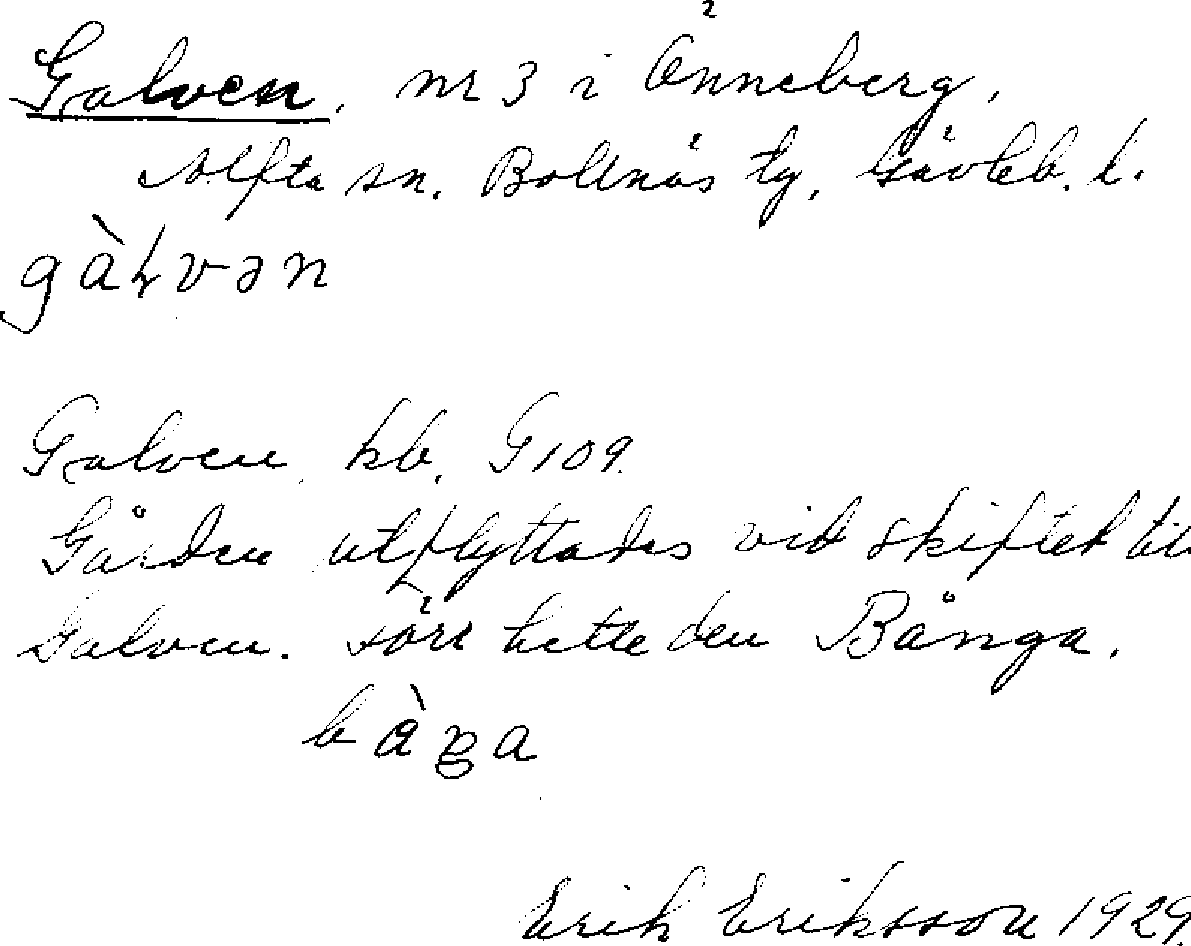 Galven, nr 3 i Änneberg,
Alfta sn. Bollnäs tg, Gävleb. l.
gàɫvən
Galven, kb. G109.
Gården utflyttades vid skiftet till
Galven. Förr hette den Bånga.
bàŋa
Erik Eriksson 1929.